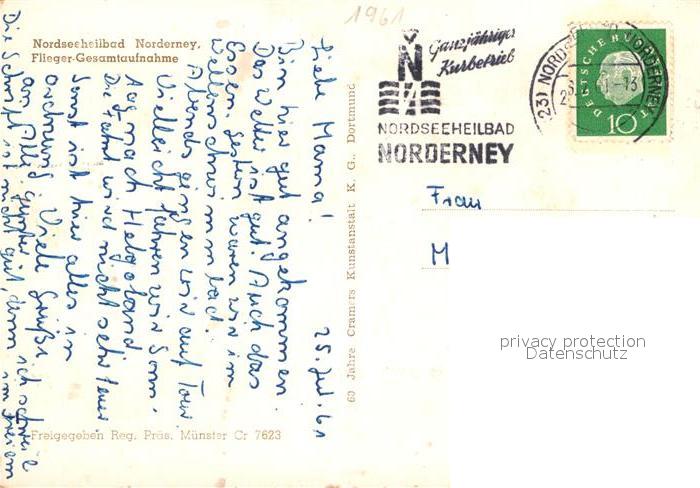 1961
Nordseeheilbad Norderney,
Flieger-Gesamtaufnahme
Ganzjähriger
Kurbetrieb
N
NORDSEEHEILBAD
NORDERNEY
(23) NORDSEEBAD NORDERNEY
DEUTSCHE BUNDESPOST
10
Frau
M
privacy protection
Datenschutz
25. Jul. 61
Liebe Mama!
Bin hier gut angekommen.
Das Wetter ist gut. Auch das
Essen. Gestern waren wir im
Wellenschwimmbad.
Abends gingen wir auf Tour
Vielleicht fahren wir Sonn.
tag nach Helgoland
Die Fahrt wird nicht sehr teuer
Sonst ist hier alles in
Ordnung Viele Grüße
an Alle Günter
Die Schrift ist nicht gut, denn ich schreibe im Freien
60 Jahre Cramers Kunstanstalt K. G., Dortmund
Freigegeben Reg. Präs. Münster Cr 7623